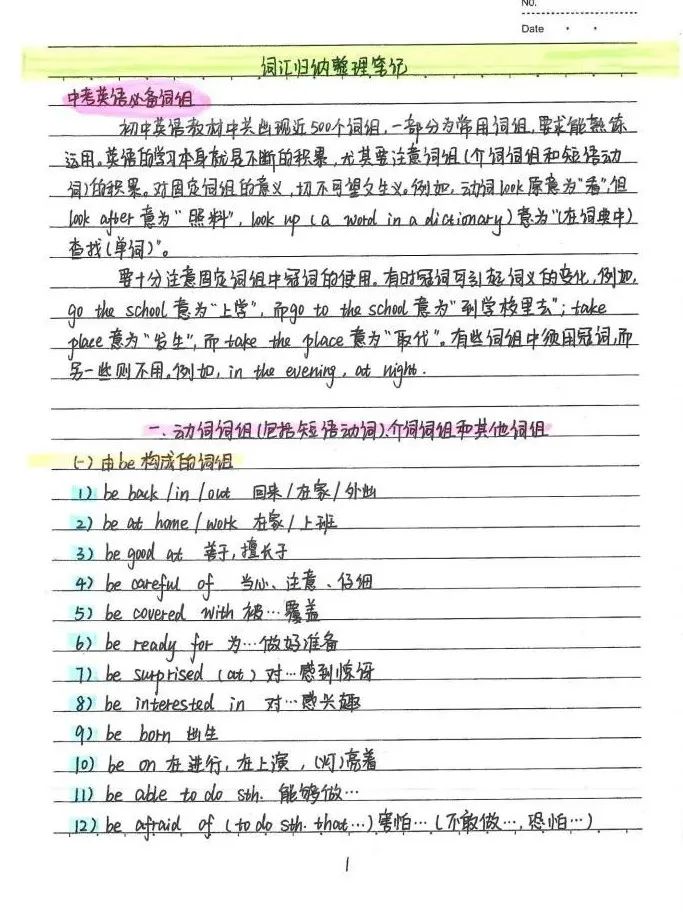 No.
Date
词汇归纳整理笔记
中考英语必备词组
初中英语教材中共出现近500个词组,一部分为常用词组,要求能熟练
运用。英语的学习本身就是不断的积累,尤其要注意词组(介词词组和短语动
词)的积累。对固定词组的意义,切不可望文生义。例如,动词look原意为"看",但
look after 意为"照料", look up (a word in a dictionary) 意为"(在词典中)
查找(单词)"。
要十分注意固定词组中冠词的使用。有时冠词可引起词义的变化,例如,
go the school 意为"上学",而go to the school 意为"到学校里去"; take
place 意为"发生",而 take the place 意为"取代"。有些词组中须用冠词,而
另一些则不用。例如, in the evening, at night.
一、动词词组(包括短语动词)、介词词组和其他词组
(一) 由be 构成的词组
1) be back /in /out 回来/在家/外出
2) be at home / work 在家/上班
3) be good at 善于,擅长于
4) be careful of 当心、注意、仔细
5) be covered with 被…覆盖
6) be ready for 为…做好准备
7) be surprised (at) 对…感到惊讶
8) be interested in 对…感兴趣
9) be born 出生
10) be on 在进行,在上演,(灯)亮着
11) be able to do sth. 能够做…
12) be afraid of (to do sth. that…) 害怕…(不敢做…,恐怕…)
1